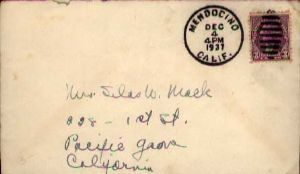 MENDOCINO
DEC
4
4PM
1937
CALIF.
Mrs. Silas W. Mack
- 1st St.
Pacific Grove
California